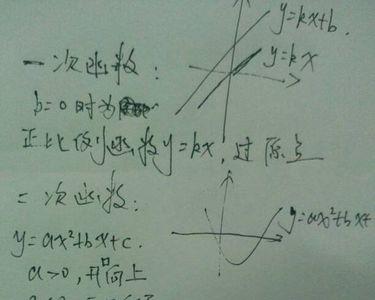 y=kx+b.
一次函数:
y=kx
b=0时为
正比例函数y=kx,过原点
二次函数:
y=ax²+bx+
y=ax²+bx+c.
a>0,开口向上